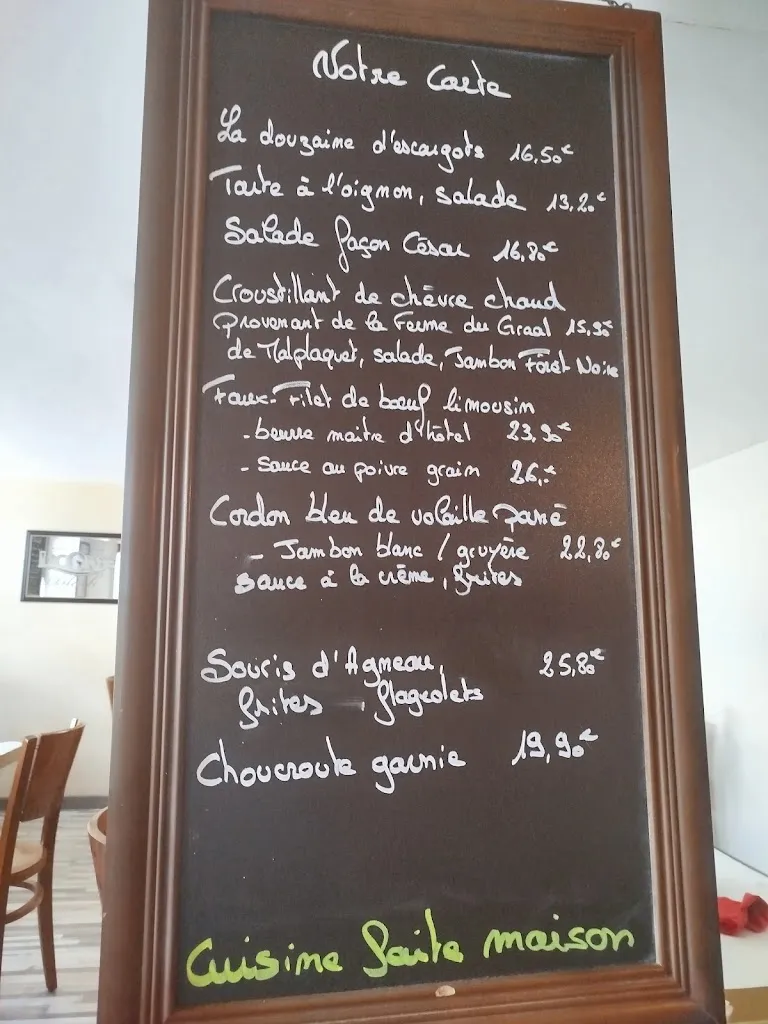 Notre Carte
La douzaine d'escargots 16,50€
Tarte à l'oignon, salade 13,20€
Salade façon César 16,80€
Croustillant de chèvre chaud
provenant de la Ferme du Graal 15,90€
de Malplaquet, salade, Jambon Forêt Noire
Faux-Filet de bœuf limousin
- beurre maitre d'hôtel 23,90€
- Sauce au poivre grain 26,-€
Cordon bleu de volaille pané
- Jambon blanc / gruyère 22,80€
sauce à la crème, frites
Souris d'Agneau, 25,80€
frites - flageolets
Choucroute garnie 19,90€
Cuisine faite maison